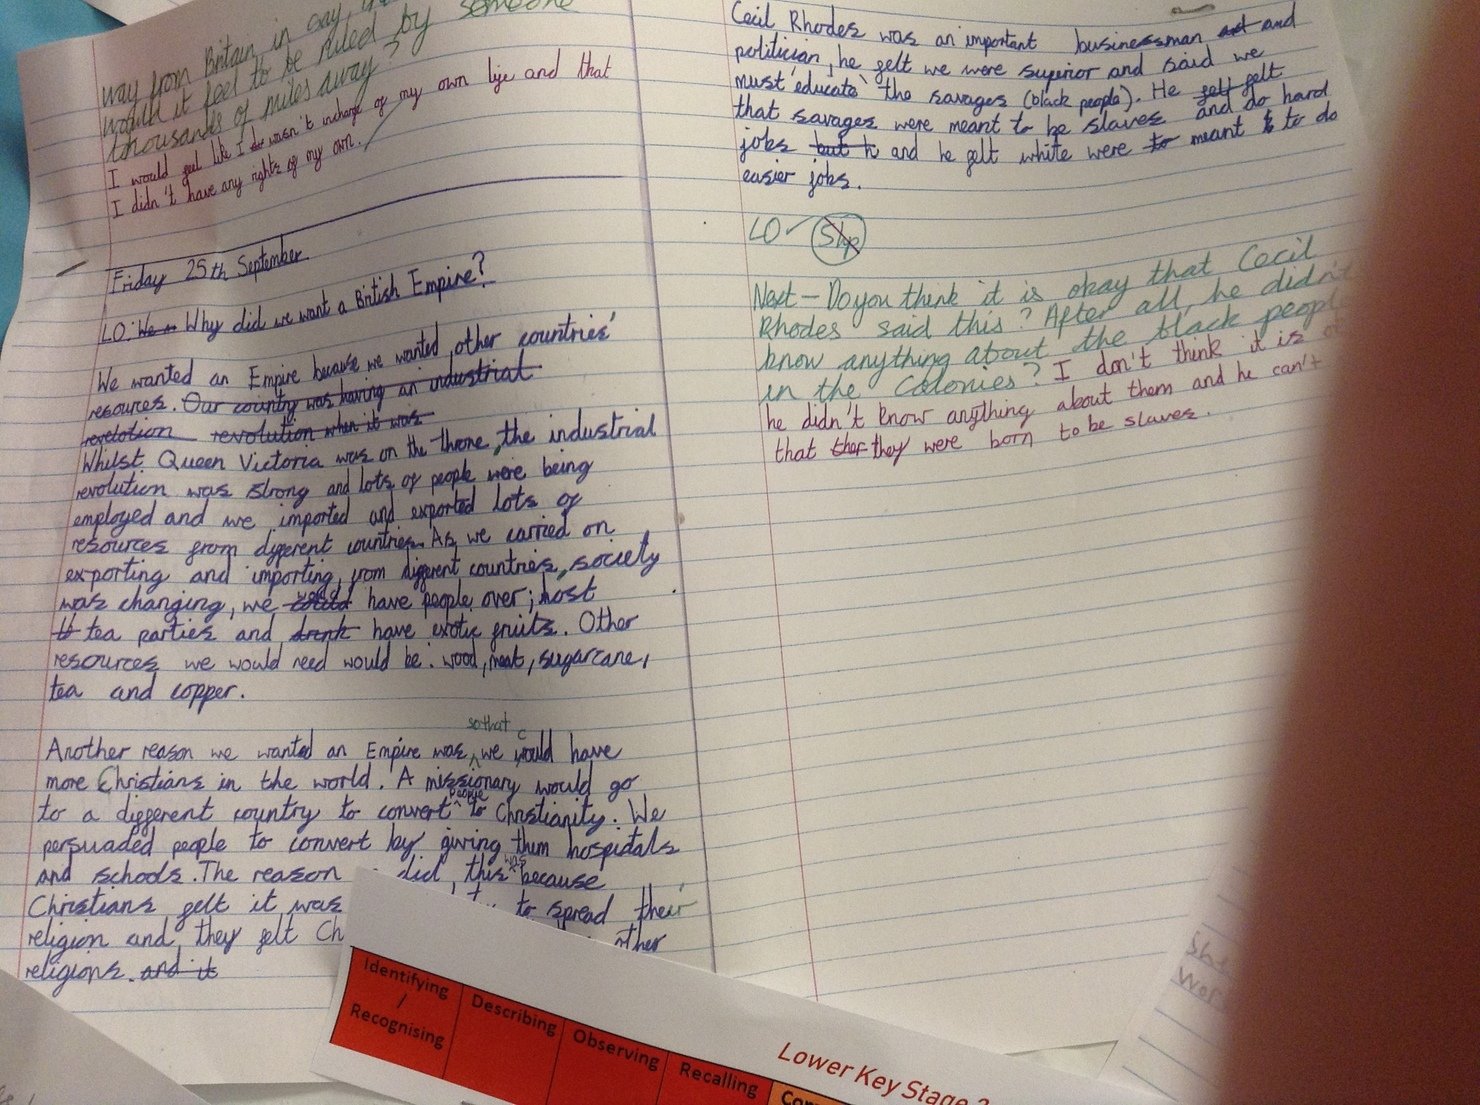 way from Britain in say,
would it feel to be ruled by someone
thousands of miles away?
I would feel like I wasn't incharge of my own life and that
I didn't have any rights of my own.
Friday 25th September
LO: We Why did we want a British Empire?
We wanted an Empire because we wanted other countries'
resources. Our country was having an industrial
revelotion revolution when it was
Whilst Queen Victoria was on the throne, the industrial
revolution was strong and lots of people were being
employed and we imported and exported lots of
resources from different countries. As we carried on
exporting and importing from different countries, society
was changing, we could would have people over; host
tea parties and drink have exotic fruits. Other
resources we would need would be: wood, meat, sugarcane,
tea and copper.
so that c
Another reason we wanted an Empire was we would have
more Christians in the world. A missionary would go
people
to a different country to convert to Christianity. We
persuaded people to convert by giving them hospitals
was
and schools. The reason did this because
Christians felt it was to spread their
religion and they felt Ch other
religions. and it
Cecil Rhodes was an important businessman and
politician, he felt we were superior and said we
must 'educate' the savages (black people). He felt felt
that savages were meant to be slaves and do hard
jobs but and he felt white were to meant to do
easier jobs.
LO Slip
Next - Do you think it is okay that Cecil
Rhodes said this? After all, he didn't
know anything about the black people
in the Colonies? I don't think it is
he didn't know anything about them and he can't
that ther they were born to be slaves.
She
Wor
Identifying
/
Recognising
Describing
Observing
Recalling
Lower Key Stage 2